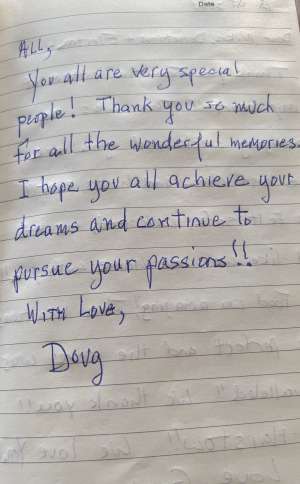 Date
All,
You all are very special
people! Thank you so much
for all the wonderful memories.
I hope you all achieve your
dreams and continue to
pursue your passions!!
With Love,
Doug